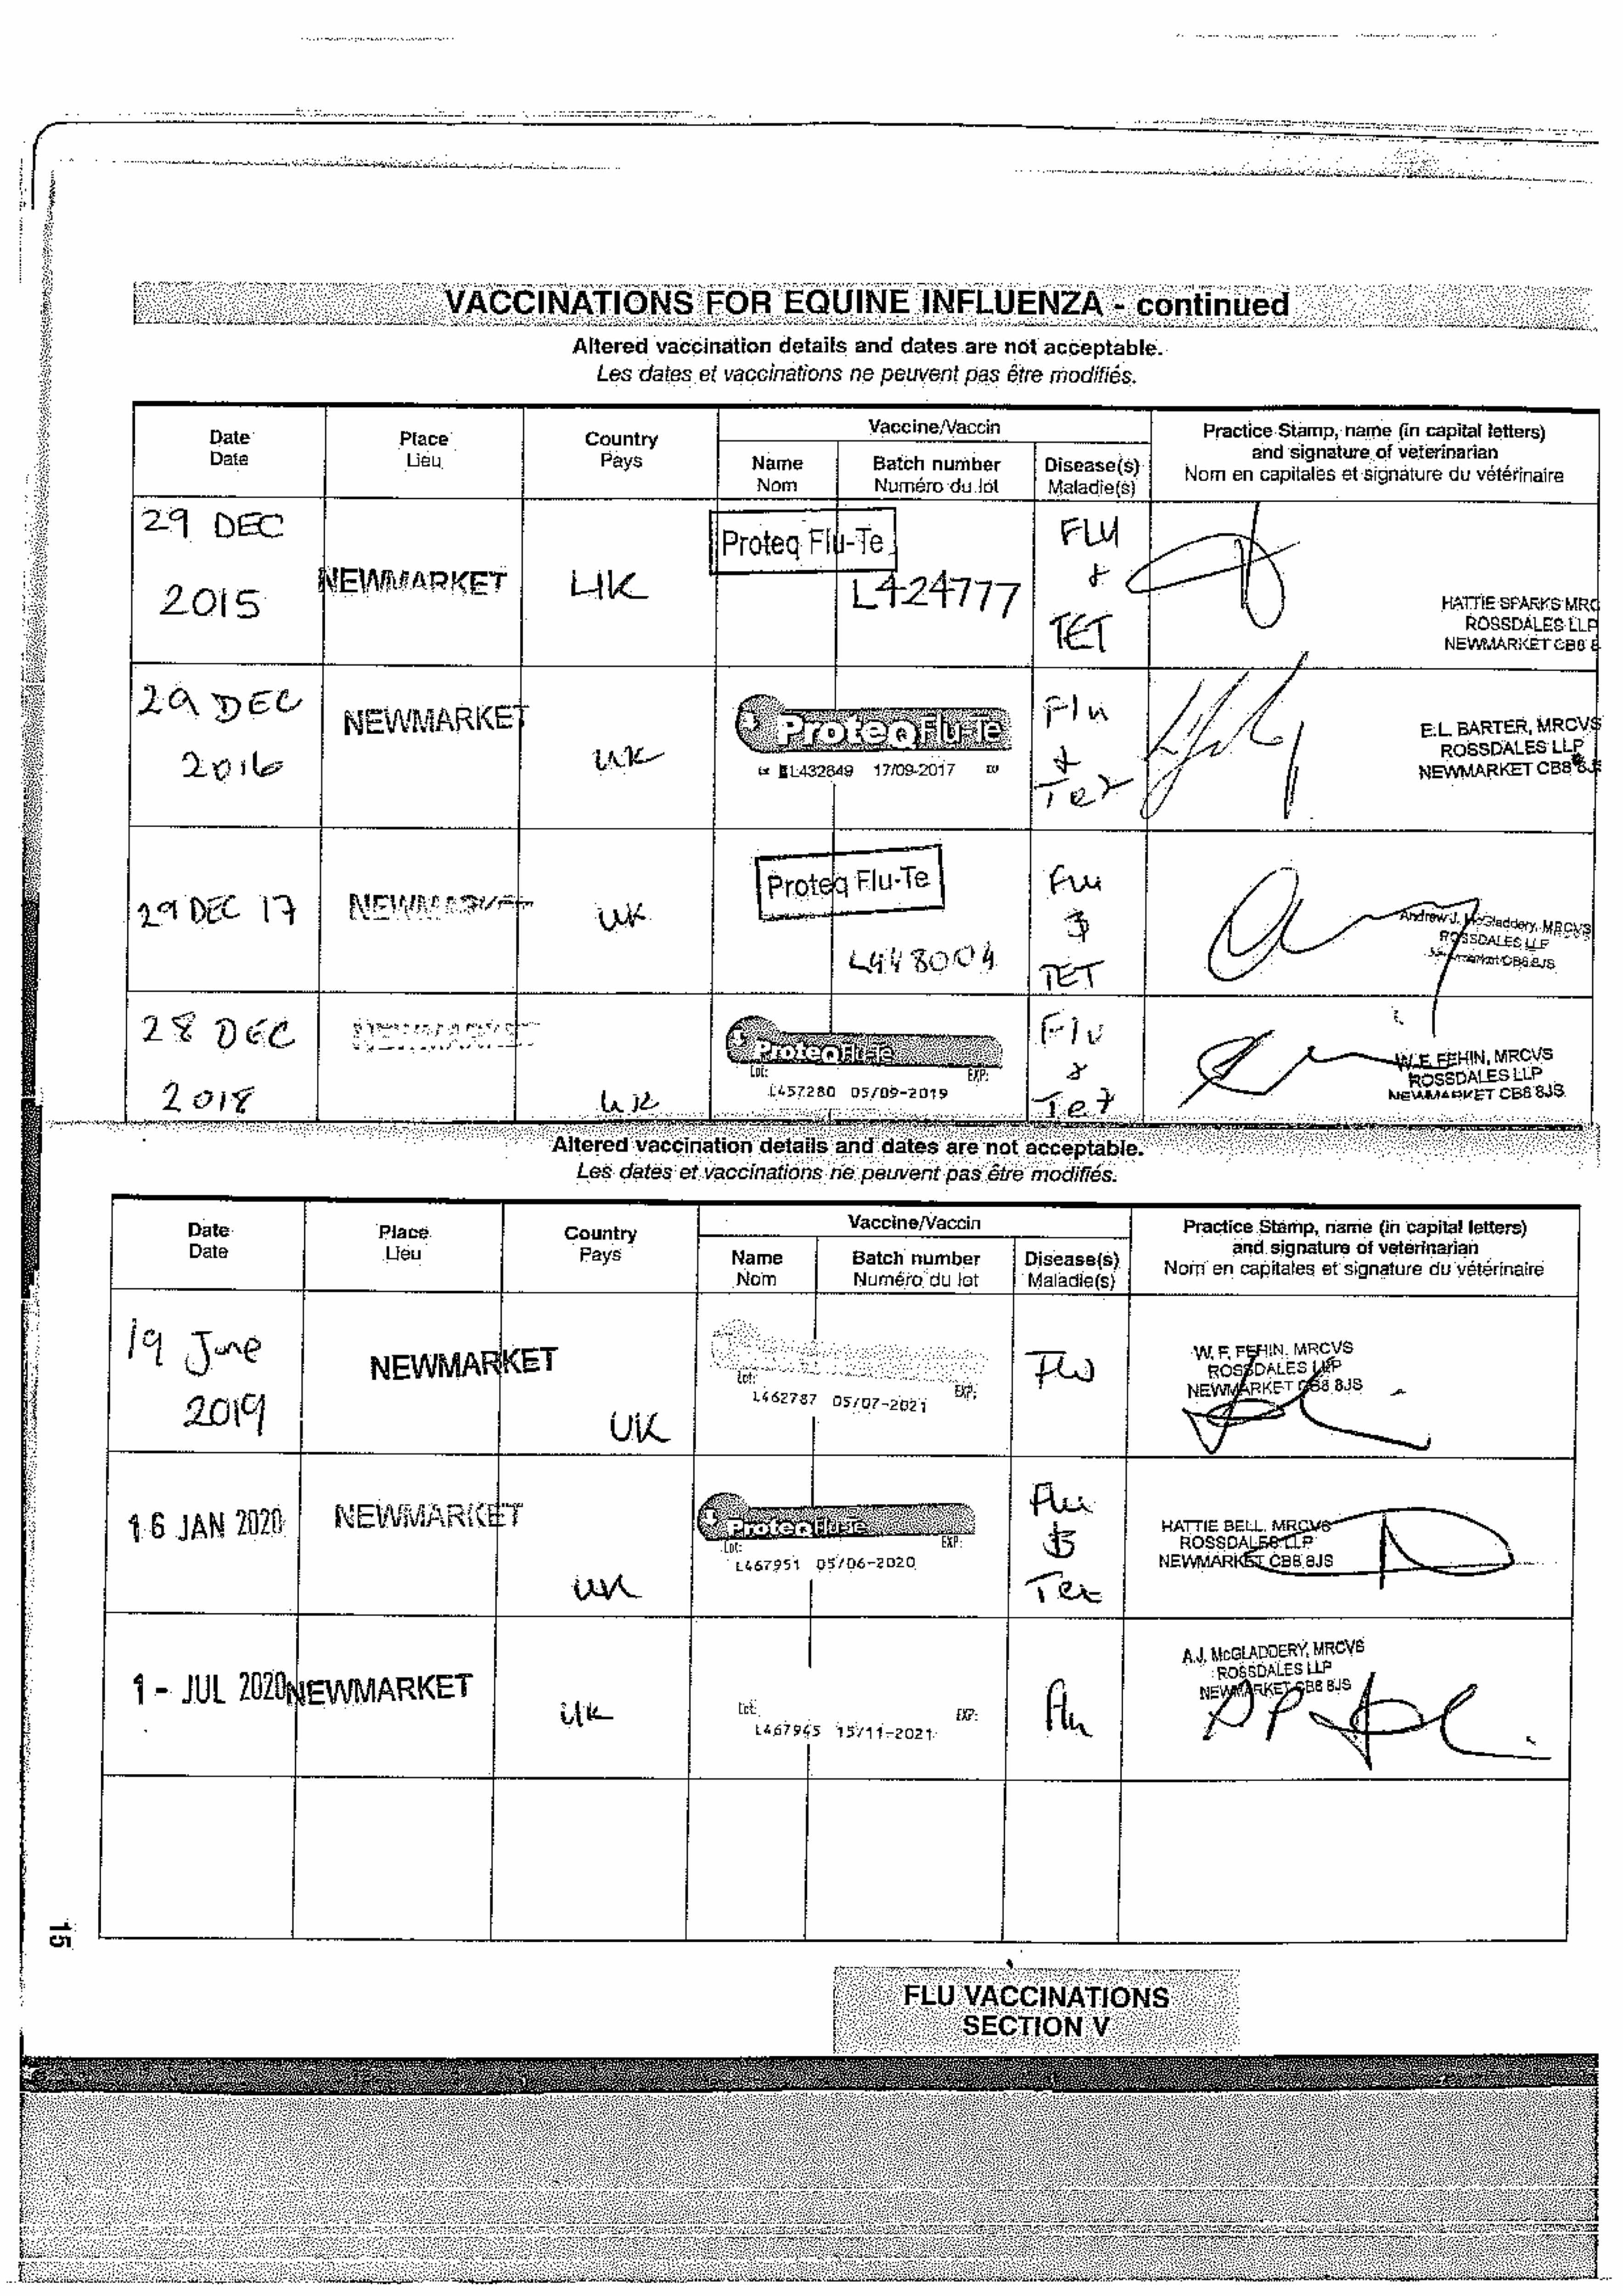 VACCINATIONS FOR EQUINE INFLUENZA - continued
Altered vaccination details and dates are not acceptable.
Les dates et vaccinations ne peuvent pas être modifiés.
Date
Date
Place
Lieu
Country
Pays
Vaccine/Vaccin
Name
Nom
Batch number
Numéro du lot
Disease(s)
Maladie(s)
Practice Stamp, name (in capital letters)
and signature of veterinarian
Nom en capitales et signature du vétérinaire
29 DEC
2015
NEWMARKET
UK
Proteq Flu-Te
L424777
FLU
&
TET
HATTIE SPARKS MRC
ROSSDALES LLP
NEWMARKET CB8 8
29 DEC
2016
NEWMARKET
UK
ProteqFlu-Te
L432849 17/09-2017
Flu
&
Tet
E.L. BARTER, MRCVS
ROSSDALES LLP
NEWMARKET CB8 8JS
29 DEC 17
NEWMARKET
UK
Proteq Flu-Te
L448004
Flu
&
TET
Andrew J. McGladdery, MRCVS
ROSSDALES LLP
Newmarket CB8 8JS
28 DEC
2018
NEWMARKET
UK
ProteqFlu-Te
Lot: EXP:
L457280 05/09-2019
Flu
&
Tet
W.F. FEHIN, MRCVS
ROSSDALES LLP
NEWMARKET CB8 8JS
Altered vaccination details and dates are not acceptable.
Les dates et vaccinations ne peuvent pas être modifiés.
Date
Date
Place
Lieu
Country
Pays
Vaccine/Vaccin
Name
Nom
Batch number
Numéro du lot
Disease(s)
Maladie(s)
Practice Stamp, name (in capital letters)
and signature of veterinarian
Nom en capitales et signature du vétérinaire
19 June
2019
NEWMARKET
UK
Lot: EXP:
L462787 05/07-2021
Flu
W.F. FEHIN, MRCVS
ROSSDALES LLP
NEWMARKET CB8 8JS
16 JAN 2020
NEWMARKET
UK
ProteqFlu-Te
Lot: EXP:
L467951 05/06-2020
Flu
&
Tet
HATTIE BELL, MRCVS
ROSSDALES LLP
NEWMARKET CB8 8JS
1 - JUL 2020
NEWMARKET
UK
Lot: EXP:
L467945 15/11-2021
Flu
A.J. McGLADDERY, MRCVS
ROSSDALES LLP
NEWMARKET CB8 8JS
15
FLU VACCINATIONS
SECTION V